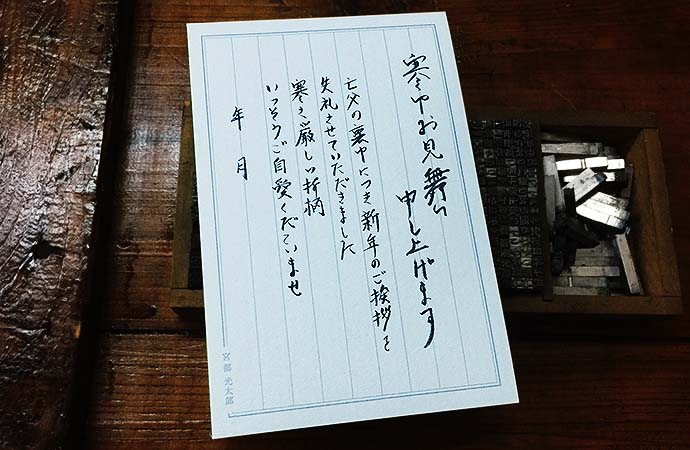 寒中お見舞い
申し上げます
亡父の喪中につき新年のご挨拶を
失礼させていただきました
寒さ厳しい折柄
いっそうご自愛くださいませ
年 月
宮部 光太郎